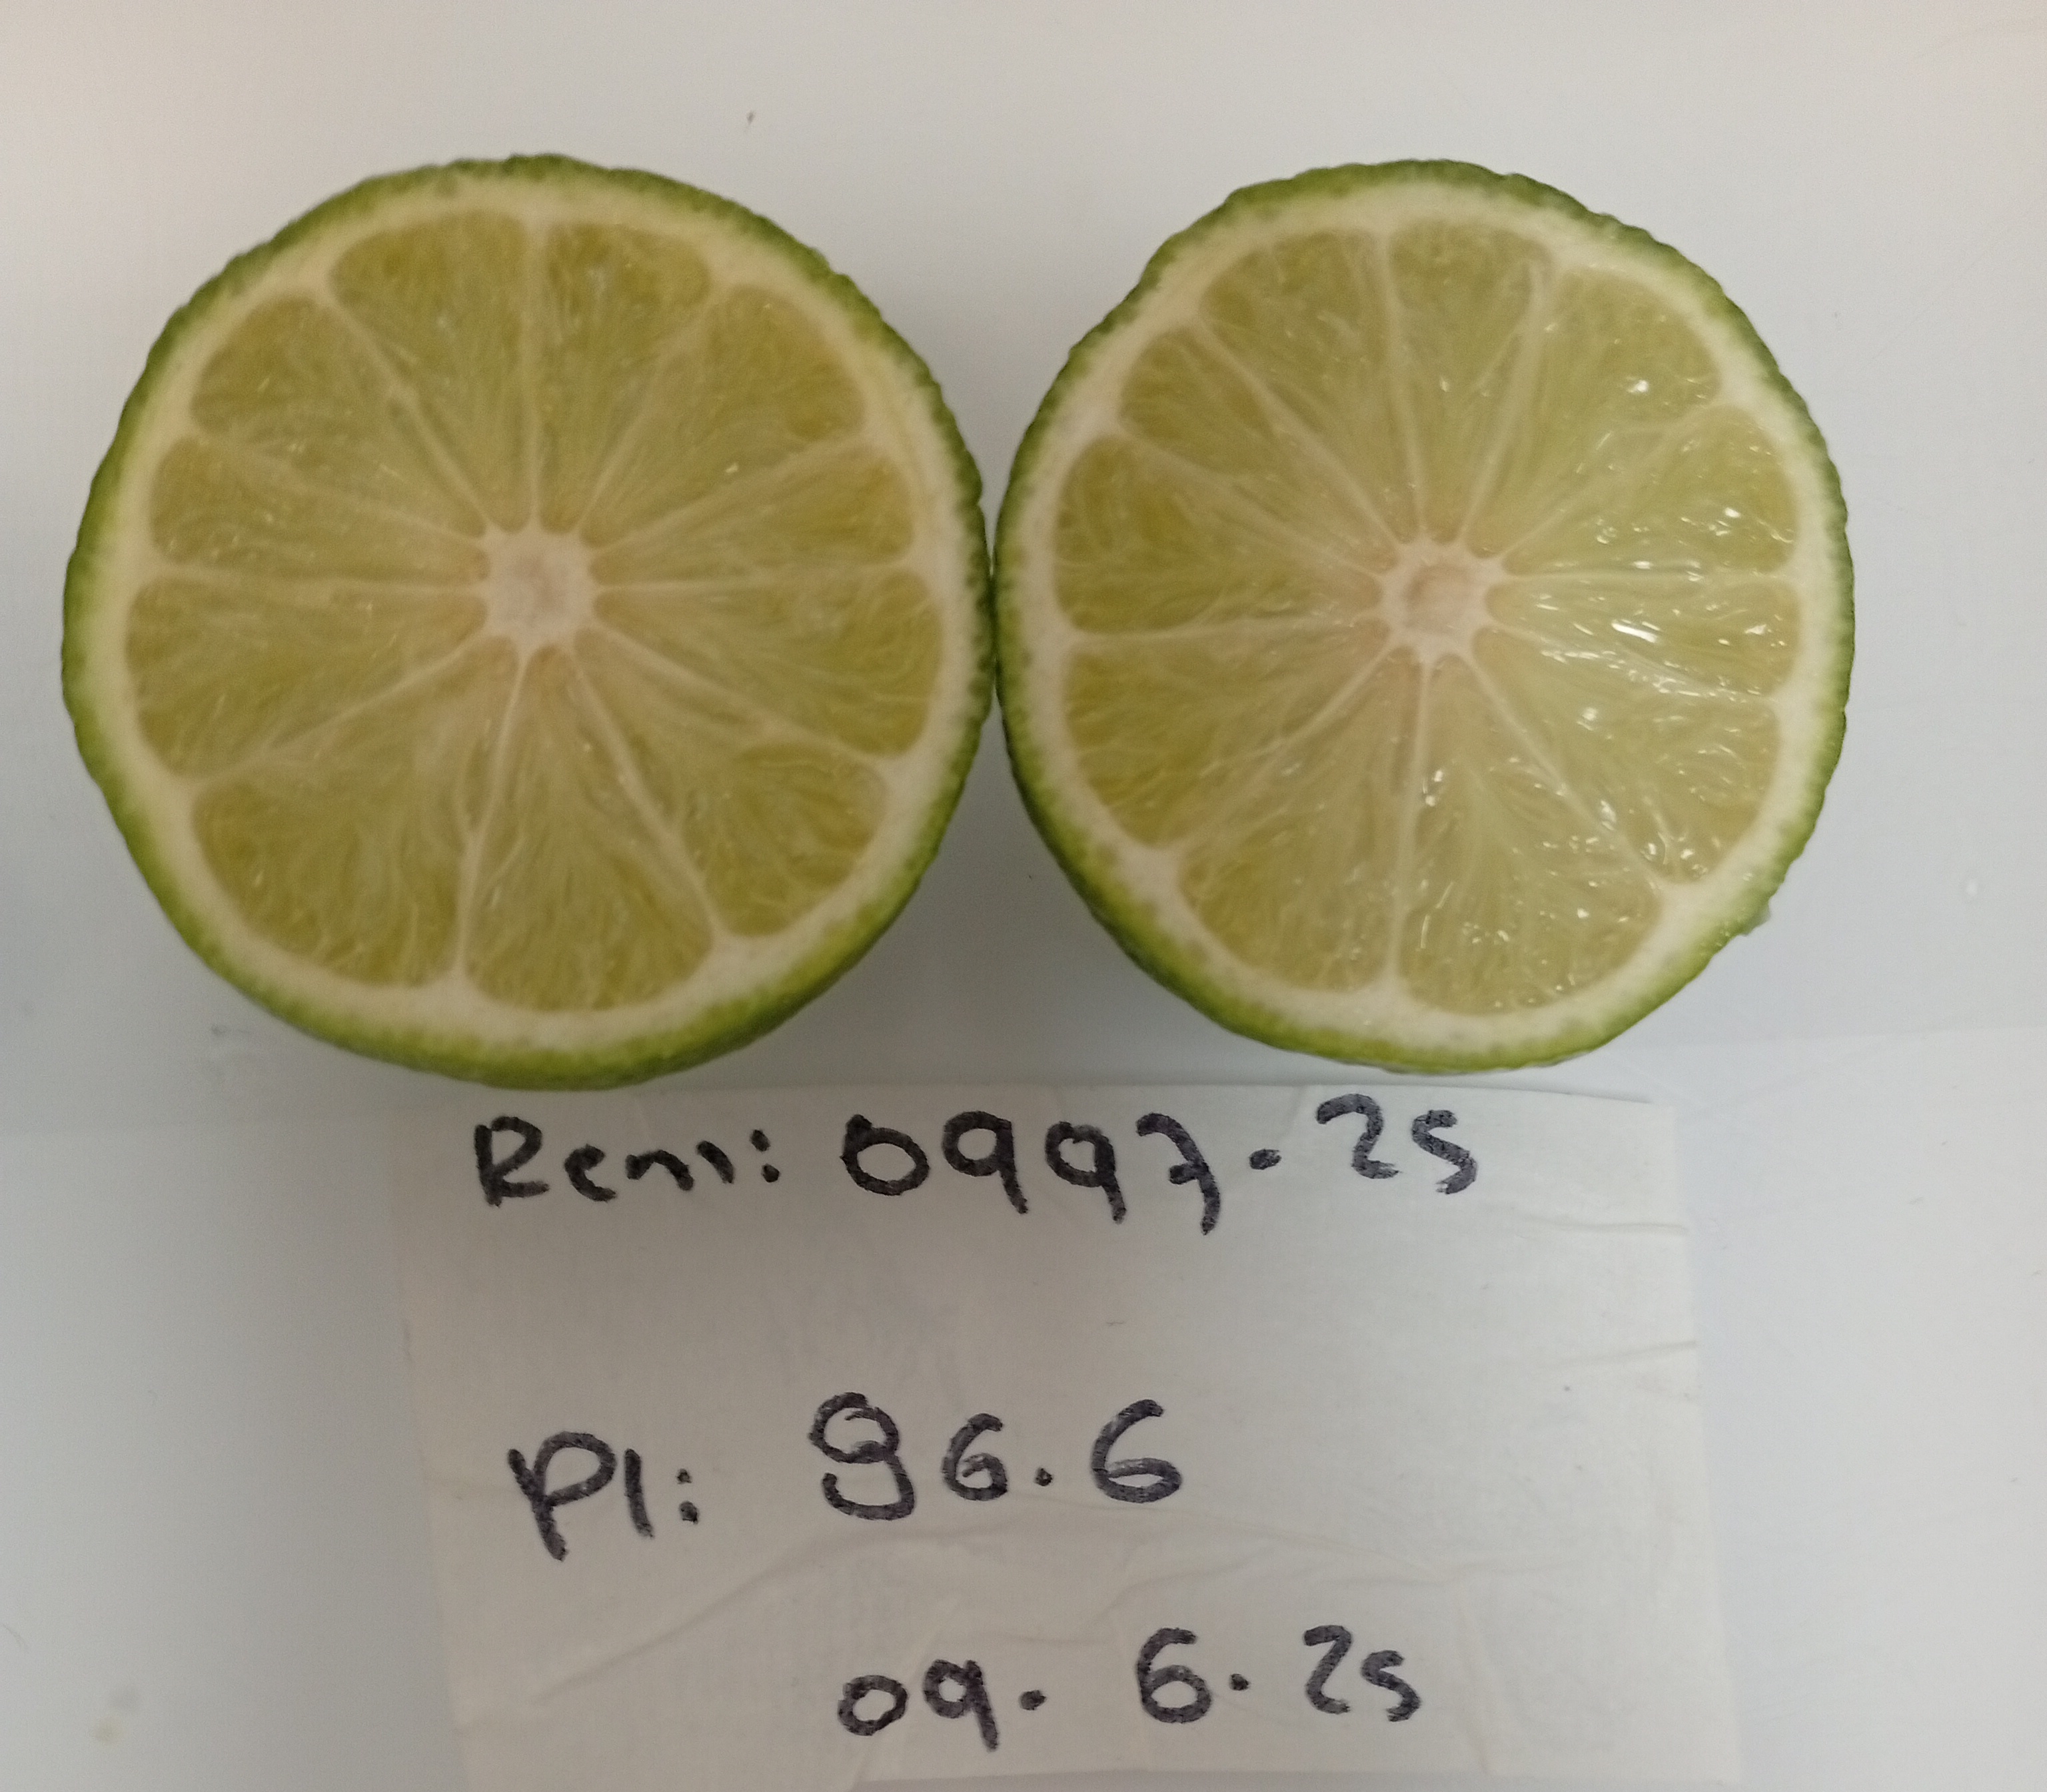 Rem: 0997-25
PI: 96.6
09. 6.25